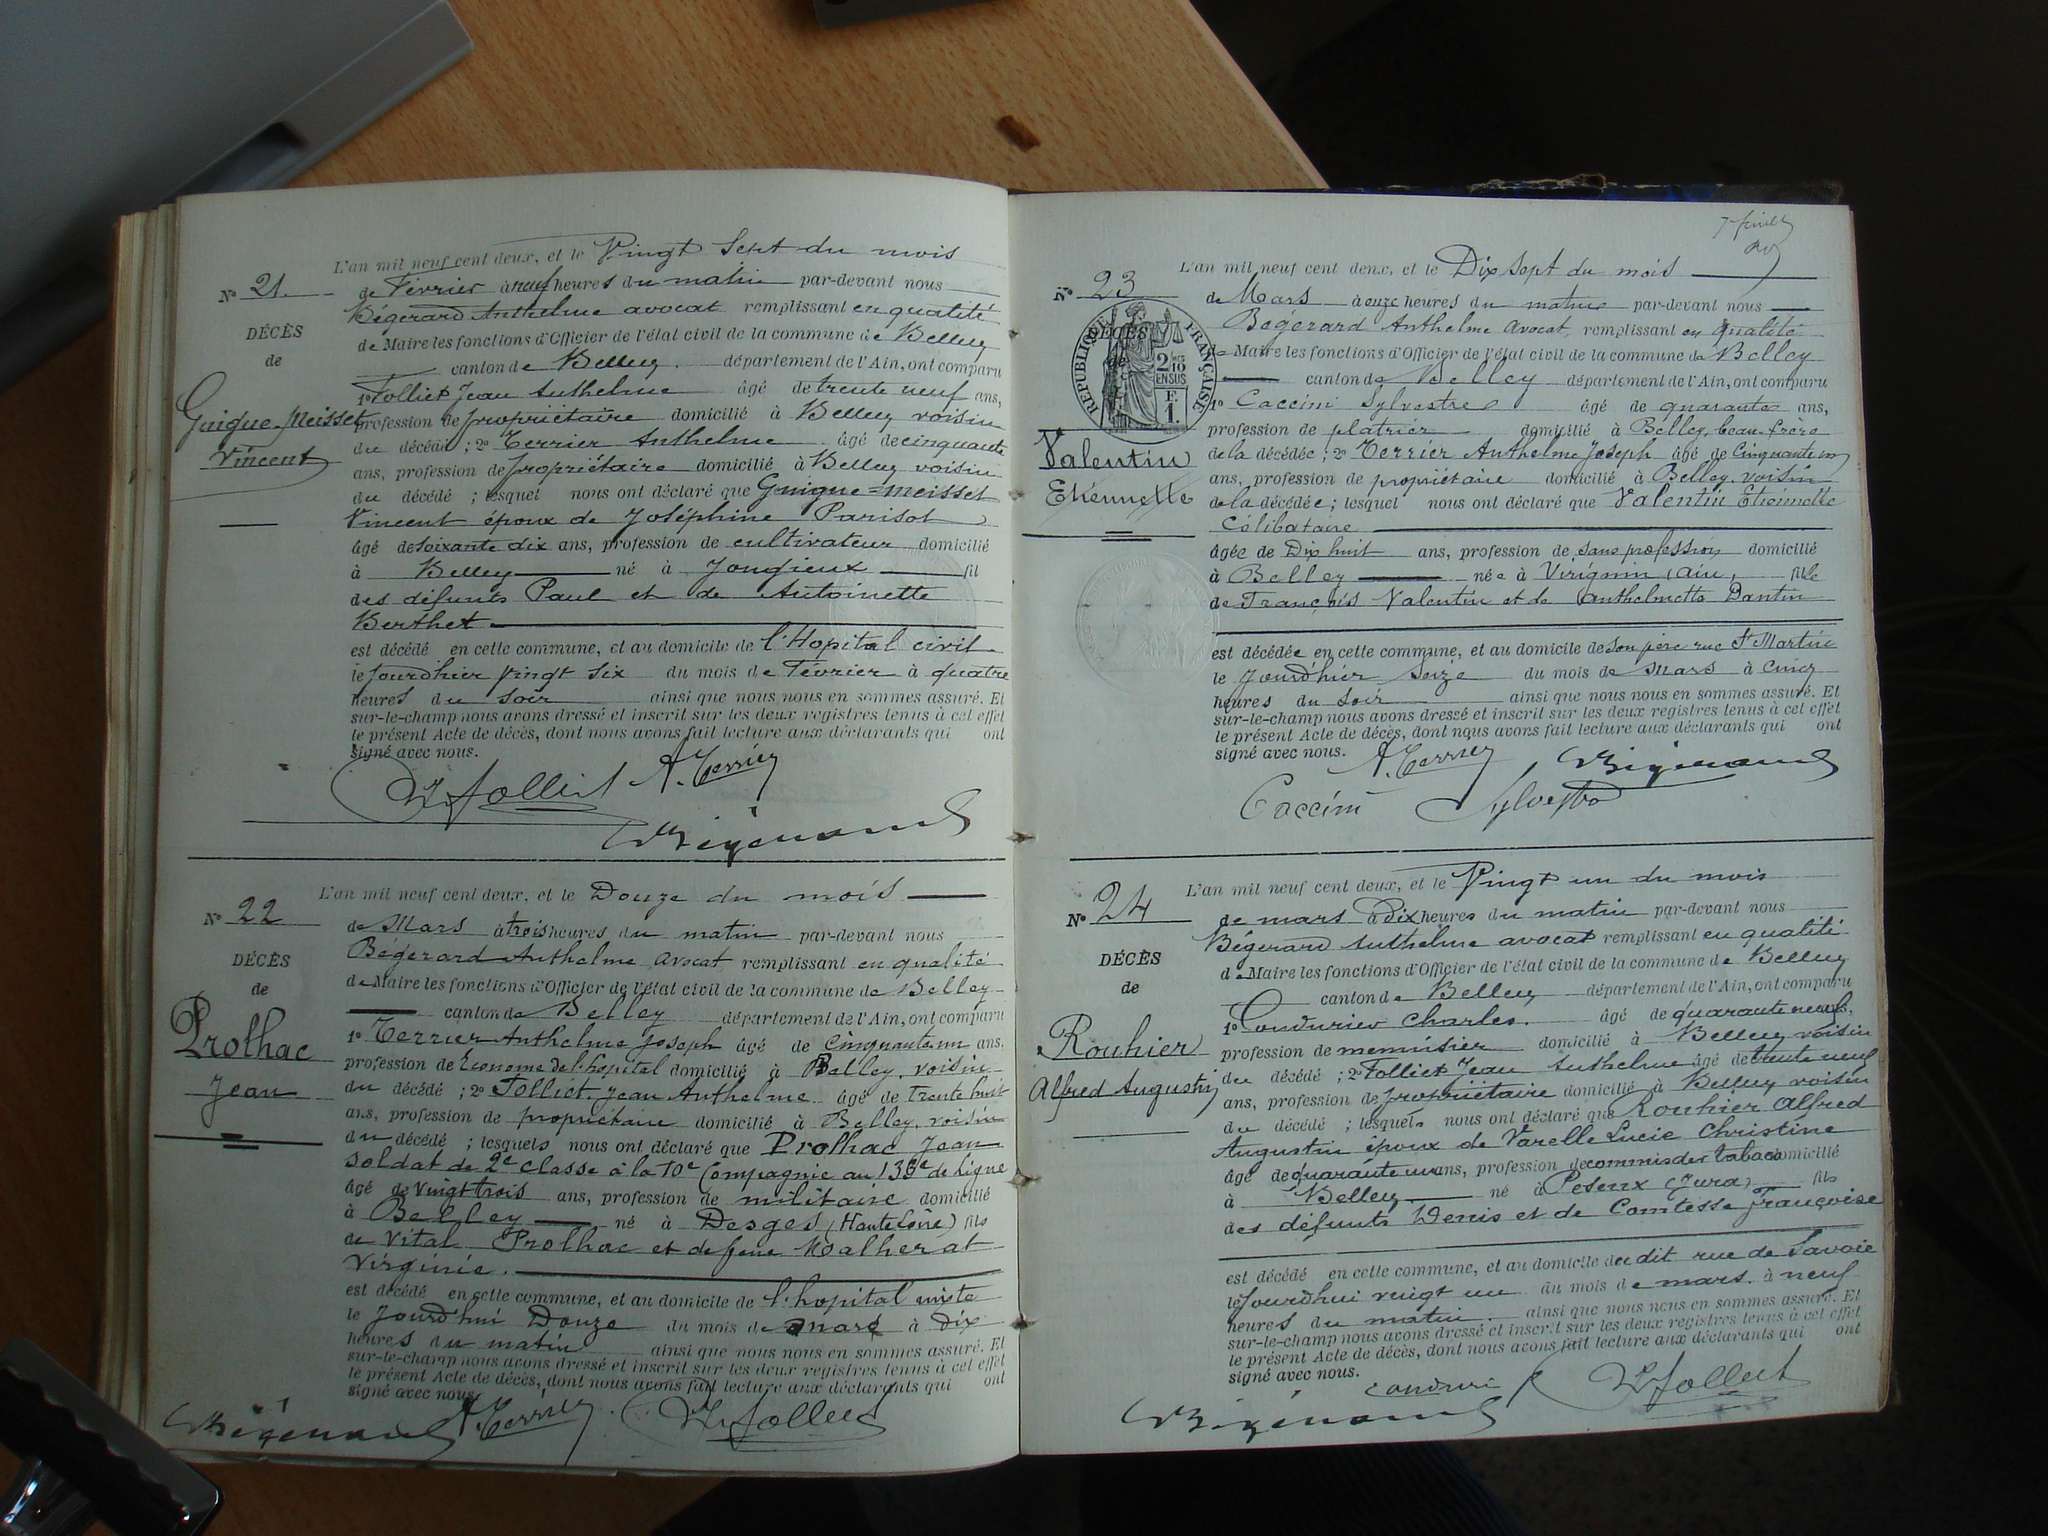 L'an mil neuf cent deux, et le Vingt Sept du mois
N° 21
de Février à neuf heures du matin par-devant nous
Bégerard Anthelme avocat remplissant en qualité
DÉCÈS
de Maire les fonctions d'Officier de l'état civil de la commune de Belley
de
canton de Belley département de l'Ain, ont comparu
1° Folliet Jean Anthelme âgé de trente neuf ans,
Guigue-Meisset
profession de propriétaire domicilié à Belley voisin
Vincent
du décédé ; 2° Terrier Anthelme âgé de cinquante
ans, profession de propriétaire domicilié à Belley voisin
du décédé ; lesquel nous ont déclaré que Guigue=Meisset
Vincent époux de Joséphine Parisot
âgé de soixante dix ans, profession de cultivateur domicilié
à Belley né à Jongieux fil
des défunts Paul et de Antoinette
Berthet
est décédé en cette commune, et au domicile de l'Hopital civil
le jourd'hier vingt six du mois de Février à quatre
heures du soir ainsi que nous nous en sommes assuré. Et
sur-le-champ nous avons dressé et inscrit sur les deux registres tenus à cet effet
le présent Acte de décès, dont nous avons fait lecture aux déclarants qui ont
signé avec nous.
A. Terrier
Folliet
Bégerard
L'an mil neuf cent deux, et le Douze du mois
N° 22
de Mars à trois heures du matin par-devant nous
Bégerard Anthelme avocat remplissant en qualité
DÉCÈS
de Maire les fonctions d'Officier de l'état civil de la commune de Belley
de
canton de Belley département de l'Ain, ont comparu
Prolhac
1° Terrier Anthelme Joseph âgé de cinquante un ans,
profession de Econome de l'hopital domicilié à Belley, voisin
Jean
du décédé ; 2° Folliet Jean Anthelme âgé de trente huit
ans, profession de propriétaire domicilié à Belley, voisin
du décédé ; lesquels nous ont déclaré que Prolhac Jean
soldat de 2e classe à la 10e Compagnie au 133e de Ligne
âgé de vingt trois ans, profession de militaire domicilié
à Belley né à Desges (Haute Loire) fils
de Vital Prolhac et de feue Malherat
Virginie.
est décédé en cette commune, et au domicile de l'hopital mixte
le jourd'hui Douze du mois de mars à Dix
heures du matin ainsi que nous nous en sommes assuré. Et
sur-le-champ nous avons dressé et inscrit sur les deux registres tenus à cet effet
le présent Acte de décès, dont nous avons fait lecture aux déclarants qui ont
signé avec nous.
Bégerard A. Terrier Folliet
L'an mil neuf cent deux, et le Dix sept du mois
N° 23
de Mars à onze heures du matin par-devant nous
Bégerard Anthelme avocat remplissant en qualité
DÉCÈS
RÉPUBLIQUE FRANÇAISE
de Maire les fonctions d'Officier de l'état civil de la commune de Belley
2/10 EN SUS
F. 1.
canton de Belley département de l'Ain, ont comparu
1° Caccini Sylvestre âgé de quarante ans,
profession de platrier domicilié à Belley, beau-frère
Valentin
de la décédée ; 2° Terrier Anthelme Joseph âgé de cinquante un
Etiennette
ans, profession de propriétaire domicilié à Belley, voisin
de la décédée ; lesquel nous ont déclaré que Valentin Etiennette
Célibataire
âgée de Dix huit ans, profession de sans profession domicilié
à Belley née à Virignin, ain, fille
de François Valentin et de Anthelmette Dantin
est décédée en cette commune, et au domicile de son père rue St Martin
le jourd'hier Seize du mois de Mars à cinq
heures du soir ainsi que nous nous en sommes assuré. Et
sur-le-champ nous avons dressé et inscrit sur les deux registres tenus à cet effet
le présent Acte de décès, dont nous avons fait lecture aux déclarants qui ont
signé avec nous. A. Terrier Bégerard
Caccini Sylvestro
L'an mil neuf cent deux, et le Vingt un du mois
N° 24
de mars à Dix heures du matin par-devant nous
Bégerard Anthelme avocat remplissant en qualité
DÉCÈS
de Maire les fonctions d'Officier de l'état civil de la commune de Belley
de
canton de Belley département de l'Ain, ont comparu
1° Condurier Charles âgé de quarante neuf,
Rouhier
profession de menuisier domicilié à Belley voisin
Alfred Augustin
du décédé ; 2° Folliet Jean Anthelme âgé de trente neuf
ans, profession de propriétaire domicilié à Belley voisin
du décédé ; lesquels nous ont déclaré que Rouhier Alfred
Augustin époux de Varelle Lucie Christine
âgé de quarante un ans, profession de commis des tabacs domicilié
à Belley né à Peseux (Jura) fils
des défunts Denis et de Comtesse Françoise
est décédé en cette commune, et au domicile du dit rue de Savoie
le jourd'hui vingt un du mois de mars à neuf
heures du matin ainsi que nous nous en sommes assuré. Et
sur-le-champ nous avons dressé et inscrit sur les deux registres tenus à cet effet
le présent Acte de décès, dont nous avons fait lecture aux déclarants qui ont
signé avec nous.
Folliet
Bégerard